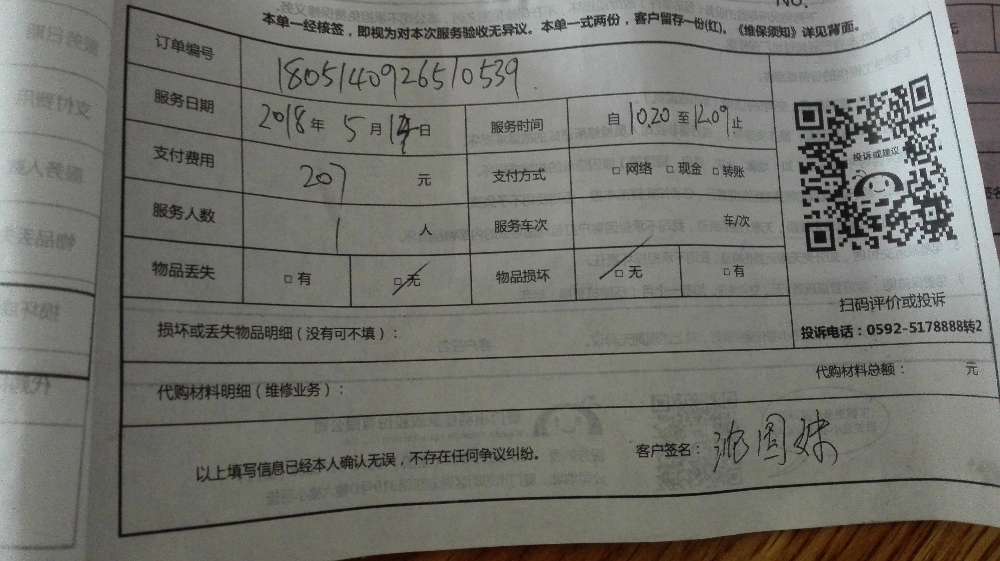 NO.
本单一经接签，即视为对本次服务验收无异议。本单一式两份，客户留存一份(红)。《维保须知》详见背面。
订单编号 1805140926510539
服务日期 2018年5月14日 服务时间 自1020至1209止
支付费用 207元 支付方式 □网络 □现金 □转账
投诉或建议
服务人数 1人 服务车次 车/次
物品丢失 □有 □无 物品损坏 □无 □有
扫码评价或投诉
损坏或丢失物品明细（没有可不填）：
投诉电话：0592-5178888转2
代购材料明细（维修业务）：
代购材料总额： 元
以上填写信息已经本人确认无误，不存在任何争议纠纷。
客户签名：